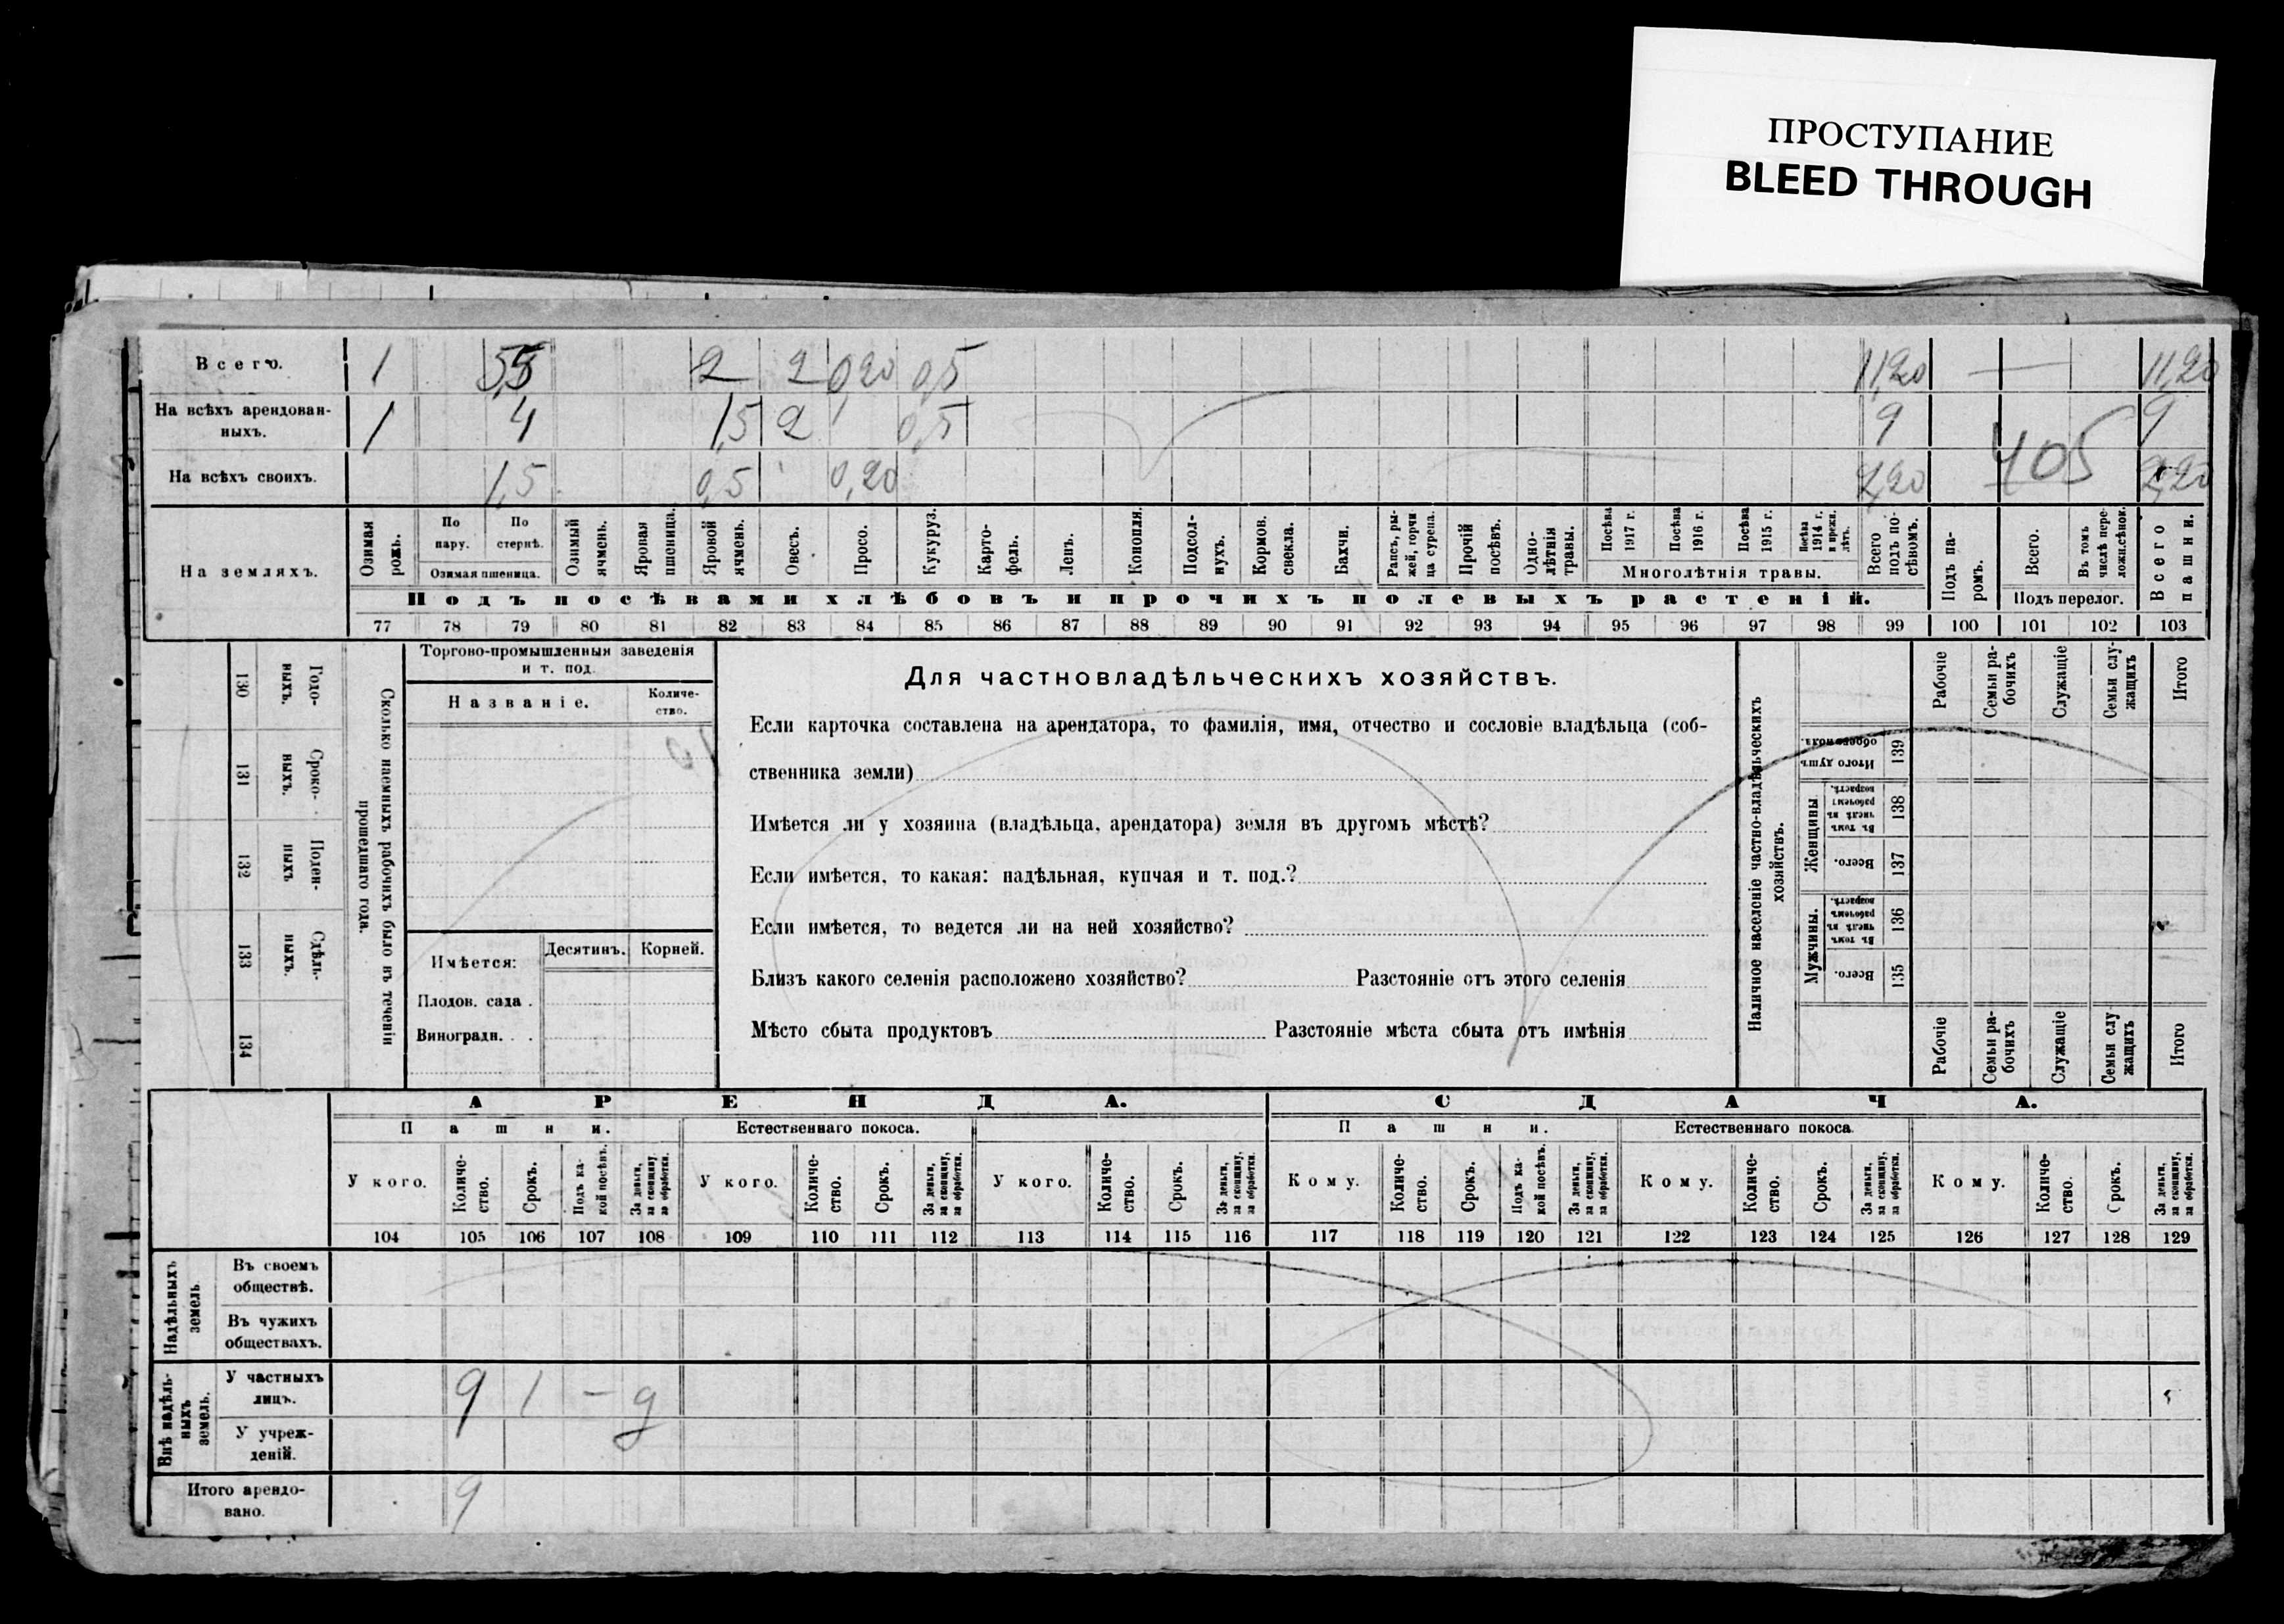 ПРОСТУПАНИЕ
BLEED THROUGH
Всего. 1 5,5 2 2 0,20 0,5 11,20 — 11,20
На всѣхъ арендован-
ныхъ. 1 4 1,5 2 0,5 9 9
405
На всѣхъ своихъ. 1,5 0,5 0,20 2,20 2,20
На земляхъ.
Озимая рожь.
По пару.
По стернѣ.
Озимая пшеница.
Озимый ячмень.
Яровая пшеница.
Яровой ячмень.
Овесъ.
Просо.
Кукуруз.
Карто-
фель.
Ленъ.
Конопля.
Подсол-
нухъ.
Кормов. свекла.
Бахчи.
Рапсъ, ры-
жей, горчи
ца сурепа.
Прочій посѣвъ.
Одно-
лѣтнія
травы.
Посѣва 1917 г.
Посѣва 1916 г.
Посѣва 1915 г.
Посѣва 1914 г. и прежн. лѣтъ.
Многолѣтнія травы.
Всего подъ по-
сѣвомъ.
Подъ па-
ромъ.
Всего.
Въ томъ числѣ пере-
ложн.сѣнок.
Подъ перелог.
Всего пашни.
Подъ посѣвами хлѣбовъ и прочихъ полевыхъ растеній.
77 78 79 80 81 82 83 84 85 86 87 88 89 90 91 92 93 94 95 96 97 98 99 100 101 102 103
Годо-
выхъ. 130
Сроко-
выхъ. 131
Поден-
ныхъ 132
Сдѣль-
ныхъ. 133
134
Сколько наемныхъ рабочихъ было въ теченіи
прошедшаго года.
Торгово-промышленныя заведенія
и т. под.
Названіе.
Количе-
ство.
Имѣется:
Десятинъ. Корней.
Плодов. сада .
Виноградн. . .
Для частновладѣльческихъ хозяйствъ.
Если карточка составлена на арендатора, то фамилія, имя, отчество и сословіе владѣльца (соб-
ственника земли)
Имѣется ли у хозяина (владѣльца, арендатора) земля въ другомъ мѣстѣ?
Если имѣется, то какая: надѣльная, купчая и т. под.?
Если имѣется, то ведется ли на ней хозяйство?
Близъ какого селенія расположено хозяйство? Разстояніе отъ этого селенія
Мѣсто сбыта продуктовъ Разстояніе мѣста сбыта отъ имѣнія
Наличное населеніе частно-владѣльческихъ
хозяйствъ.
Рабочіе
Семьи ра-
бочихъ
Служащіе
Семьи слу-
жащихъ
Итого
Итого душъ обоего пола. 139
Женщины.
Въ томъ числѣ въ рабочемъ возрастѣ. 138
Всего. 137
Мужчины.
Въ томъ числѣ въ рабочемъ возрастѣ. 136
Всего. 135
Рабочіе
Семьи ра-
бочихъ
Служащіе
Семьи слу-
жащихъ
Итого
АРЕНДА. СДАЧА.
Пашни. Естественнаго покоса. Пашни. Естественнаго покоса
У кого.
Количе-
ство.
Срокъ.
Подъ ка-
кой посѣвъ.
За деньги,
за скопщину,
за обработки.
У кого.
Количе-
ство.
Срокъ.
За деньги,
за скопщину,
за обработки.
У кого.
Количе-
ство.
Срокъ.
За деньги,
за скопщину,
за обработки.
Кому.
Количе-
ство.
Срокъ.
Подъ ка-
кой посѣвъ.
За деньги,
за скопщину,
за обработки.
Кому.
Количе-
ство.
Срокъ.
За деньги,
за скопщину,
за обработки.
Кому.
Количе-
ство.
Срокъ.
За деньги,
за скопщину,
за обработки.
104 105 106 107 108 109 110 111 112 113 114 115 116 117 118 119 120 121 122 123 124 125 126 127 128 129
Надѣльныхъ
земель
Въ своемъ
обществѣ.
Въ чужихъ
обществахъ.
Внѣ надѣль-
ныхъ
земель.
У частныхъ
лицъ. 9 1 — д
У учреж-
деній.
Итого арендо-
вано. 9